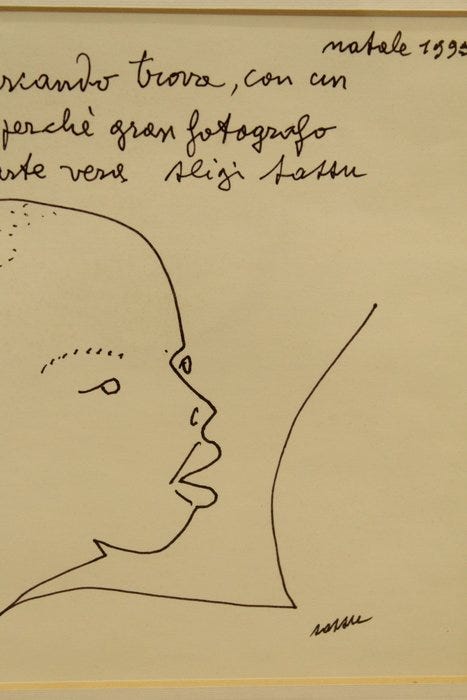 natale 1995
rcando trova, con un
perchè gran fotografo
arte vera aligi sassu
sassu